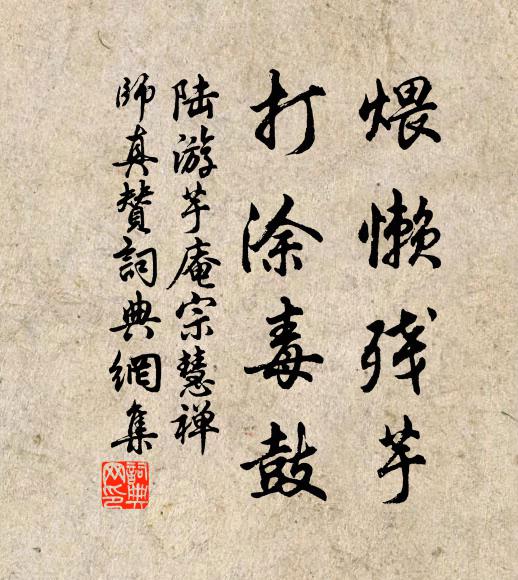 煨懒残芋
打涂毒鼓
陆游芋庵宗慧禅
师真赞詞典網集
詞典網印